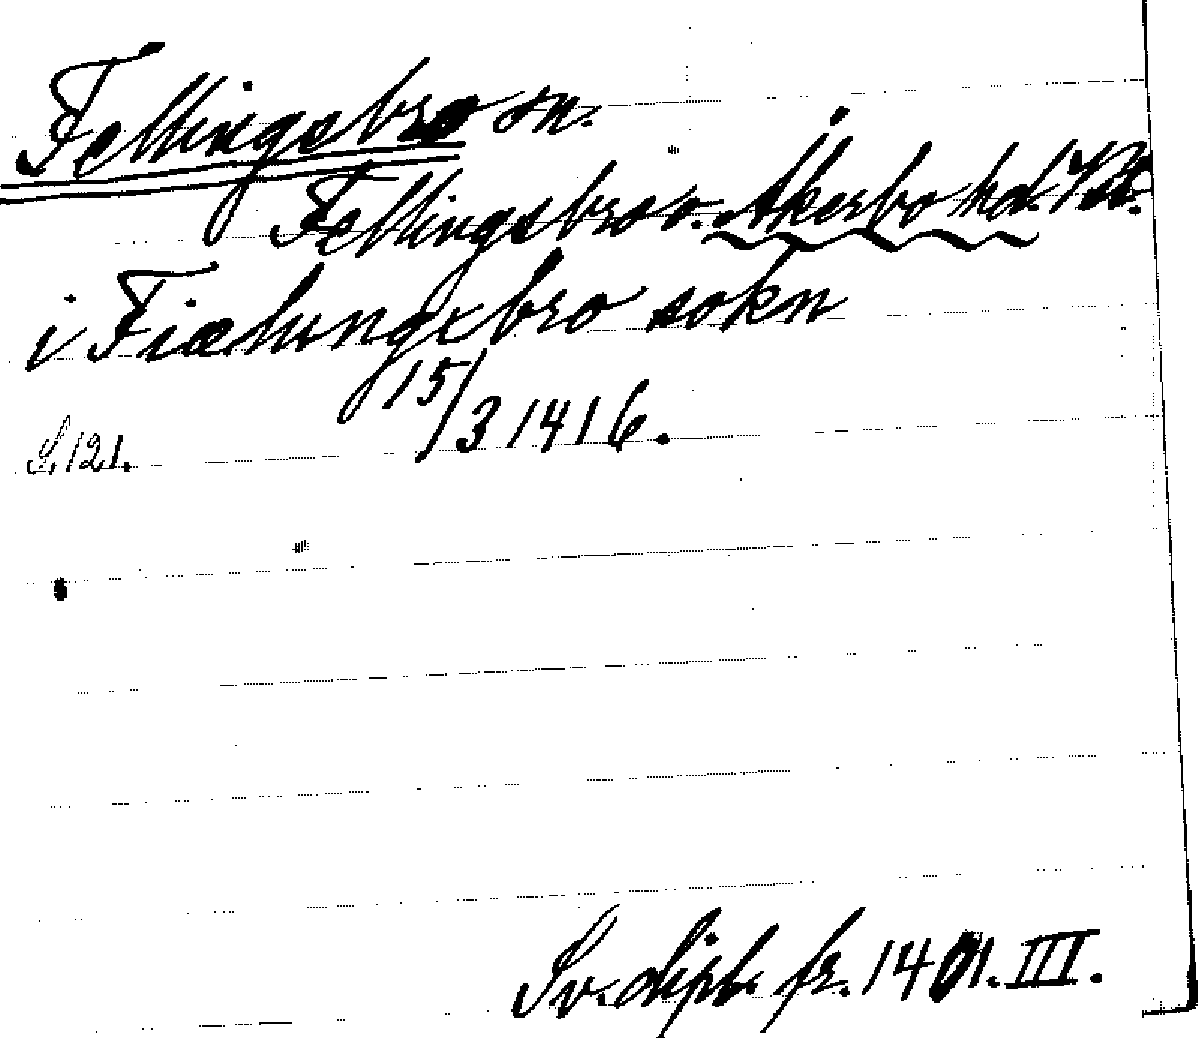 Fellingsbro sn.
Fellingsbro s. Åkerbo hd. Vstm.
i Fiælungxbro sokn
15/3 1416.
S. 121.
Sv. dipl. fr. 1401. III.